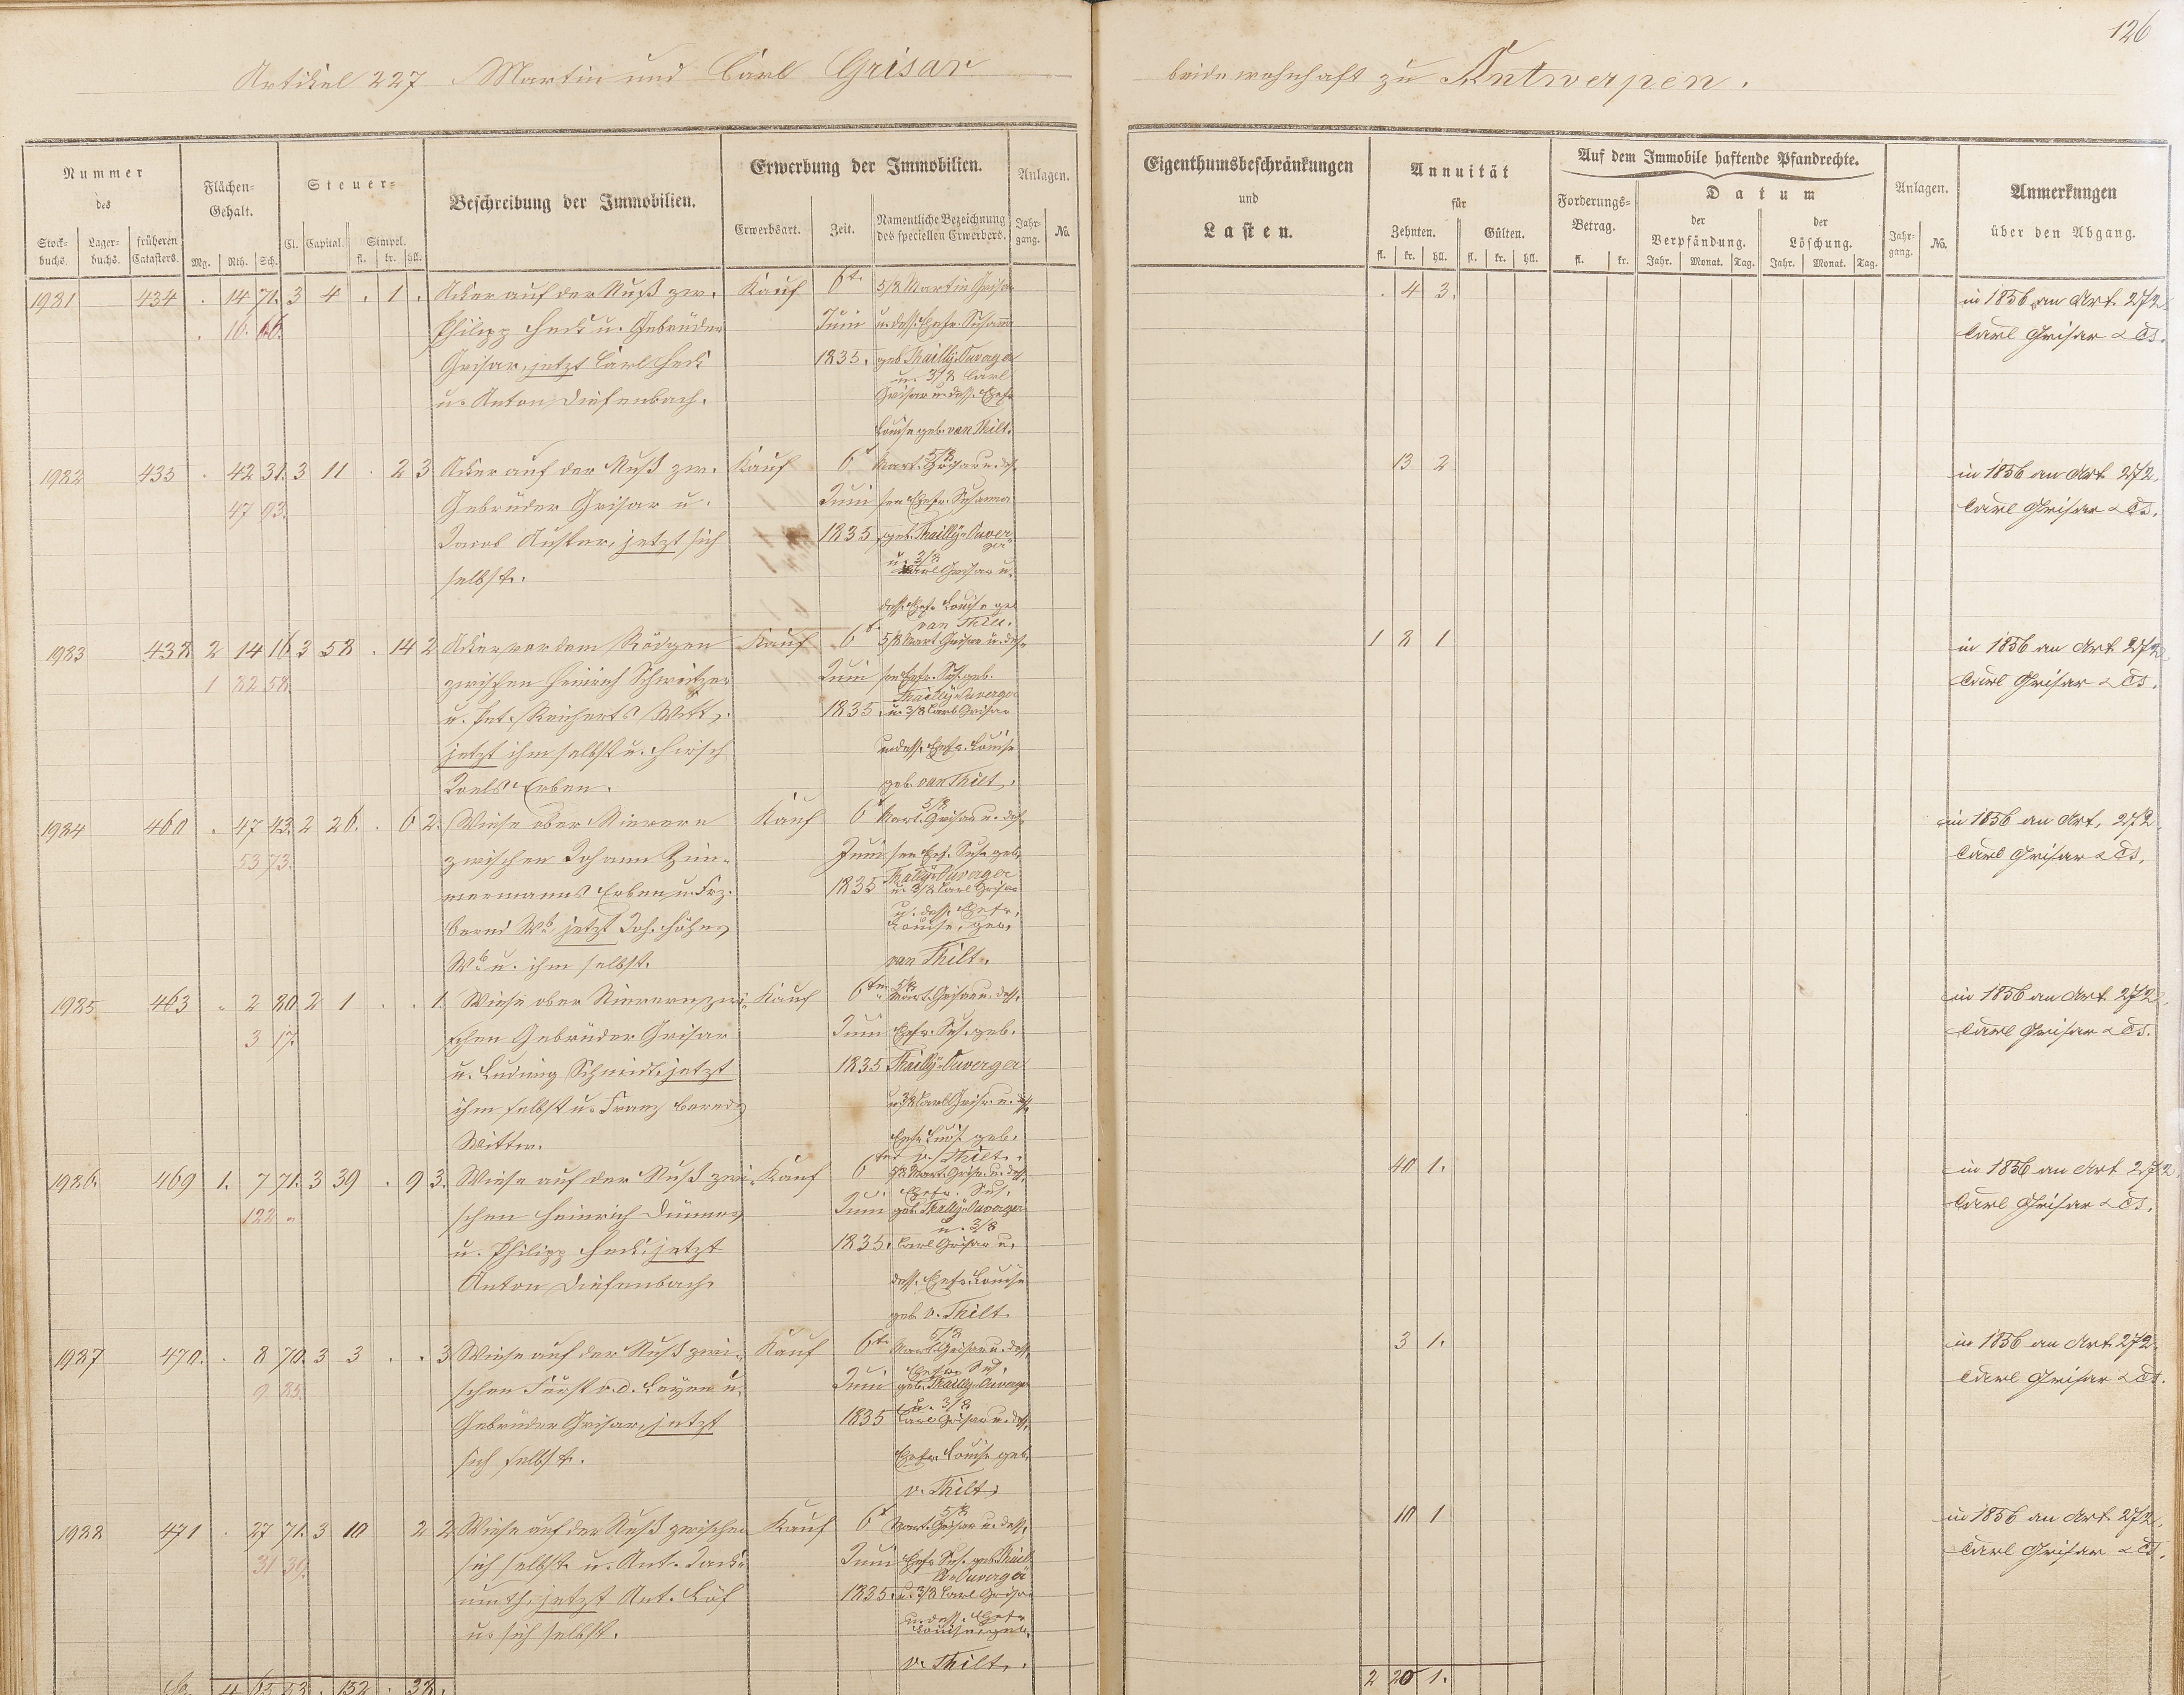 126
Artikel 227 Martin und Carl Grisar
beide wohnhaft zu Antwerpen.
Nummer des
Stockbuchs. Lagerbuchs. früheren Catasters.
Flächen-Gehalt.
Mg. Rth. Sch.
Steuer-
Cl. Capital. Simpel. fl. kr. hll.
Beschreibung der Immobilien.
Erwerbung der Immobilien.
Erwerbsart. Zeit. Namentliche Bezeichnung des speciellen Erwerbers.
Anlagen.
Jahrgang. No.
Eigenthumsbeschränkungen
und
Lasten.
Annuität
für
Zehnten. Gülten.
fl. kr. hll. fl. kr. hll.
Auf dem Immobile haftende Pfandrechte.
Forderungs-Betrag. fl. kr.
Datum
der Verpfändung. der Löschung.
Jahr. Monat. Tag. Jahr. Monat. Tag.
Anlagen.
Jahrgang. No.
Anmerkungen
über den Abgang.
1981 434 . 14 71. 3 4 . 1 . Acker auf der Nuß zw. Kauf 6t. 5/8 Martin Grisar . 4 3. in 1856 an Art. 272
. 16. 66. Philipp Heck u. Gebrüder Juni u. dess. Ehefr. Susanna Carl Grisar & Cs.
Grisar, jetzt Carl Heck 1835. geb. Mailly-Duverger
u. 3/8 Carl
u. Anton Diefenbach. Grisar u. dess. Ehefr.
Louise geb. van Thilt.
1982 435 . 42 31. 3 11 . 2 3 Acker auf der Nuß zw. Kauf 6t 5/8 Mart. Grisar u. des- 13 2 in 1856 an Art. 272.
47 93. Gebrüder Grisar u. Juni sen Ehefr. Susanna Carl Grisar & Cs.
Jacob Auster, jetzt sich 1835 geb. Mailly-Duverger
selbst. u. 3/8 Carl Grisar u.
dess. Ehefr. Louise geb
van Thilt.
1983 438 2 14 16 3 58 . 14 2 Acker vor dem Rödgen Kauf 6t. 5/8 Mart Grisar u. des- 1 8 1 in 1856 an Art. 272
1 82 58. zwischen Heinrich Schweitzer Juni sen Ehefr. Sus. geb. Carl Grisar & Cs.
Mailly-Duverger
u. Pet. Reicherts Witt., 1835 u. 3/8 Carl Grisar
jetzt ihm selbst u. Hirsch u. dess. Ehefr. Louise
Erben. geb. van Thilt.
1984 460 . 47 43. 2 26. . 6 2. Wiese ober Nievern Kauf 6t 5/8 Mart. Grisar u. des- in 1856 an Art. 272
53 73. zwischen Johann Zim- Juni sen Ehef. Sus. geb. Carl Grisar & Cs.
mermanns Erben u. Frz. 1835 Mailly-Duverger
u. 3/8 Carl Grisar
jetzt Joh. u. dess. Ehefr.
Louise, geb.
u. ihm selbst. van Thilt.
1985 463 . 2 80 2 1 . . 1. Wiese ober Nievern zwi- Kauf 6ten 5/8 Mart. Grisar u. dess. in 1856 an Art. 272
3 17. schen Gebrüder Grisar Juni Ehefr. Sus. geb. Carl Grisar & Cs.
u. Ludwig Schmidt, jetzt 1835 Mailly-Duverger
ihm selbst u. Franz u. 3/8 Carl Grisar u. dess.
Wittw. Ehefr. Louis. geb.
v. Thilt.
1986. 469 1. 7 71. 3 39 . 9 3. Wiese auf der Nuß zwi- Kauf 6ten 5/8 Mart. Grisar u. dess. 40 1. in 1856 an Art 272
122 " schen Heinrich Juni Ehefr. Sus. geb. Mailly-Duverger Carl Grisar & Cs.
u. 3/8
u. Philipp Heck, jetzt 1835. Carl Grisar u.
Anton Diefenbach dess. Ehefr. Louise
geb. v. Thilt.
1987 470. . 8 70. 3 3 . . 3 Wiese auf der Nuß zwi- Kauf 6t. 5/8 Mart. Grisar u. dess. 3 1. in 1856 an Art. 272.
9 85. schen Fürst v. d. Leyen u. Juni Ehefr. Sus. geb. Mailly-Duverger Carl Grisar & Cs.
Gebrüder Grisar, jetzt 1835 u. 3/8 Carl Grisar u. dess.
sich selbst. Ehefr. Louise geb.
v. Thilt.
1988 471 . 27 71. 3 10 2 2 Wiese auf der Nuß zwischen Kauf 6t 5/8 Mart. Grisar u. dess. 10 1 in 1856 an Art. 272.
31 39. sich selbst u. Ant. Juni Ehefr. Sus. geb. Mail- Carl Grisar & Cs.
ly-Duverger
jetzt Ant. 1835. u. 3/8 Carl Grisar
u. sich selbst. u. dess. Ehefr.
Louise, geb.
v. Thilt.
Sa. 4 65 53 . 152 . 38. 2 20 1.